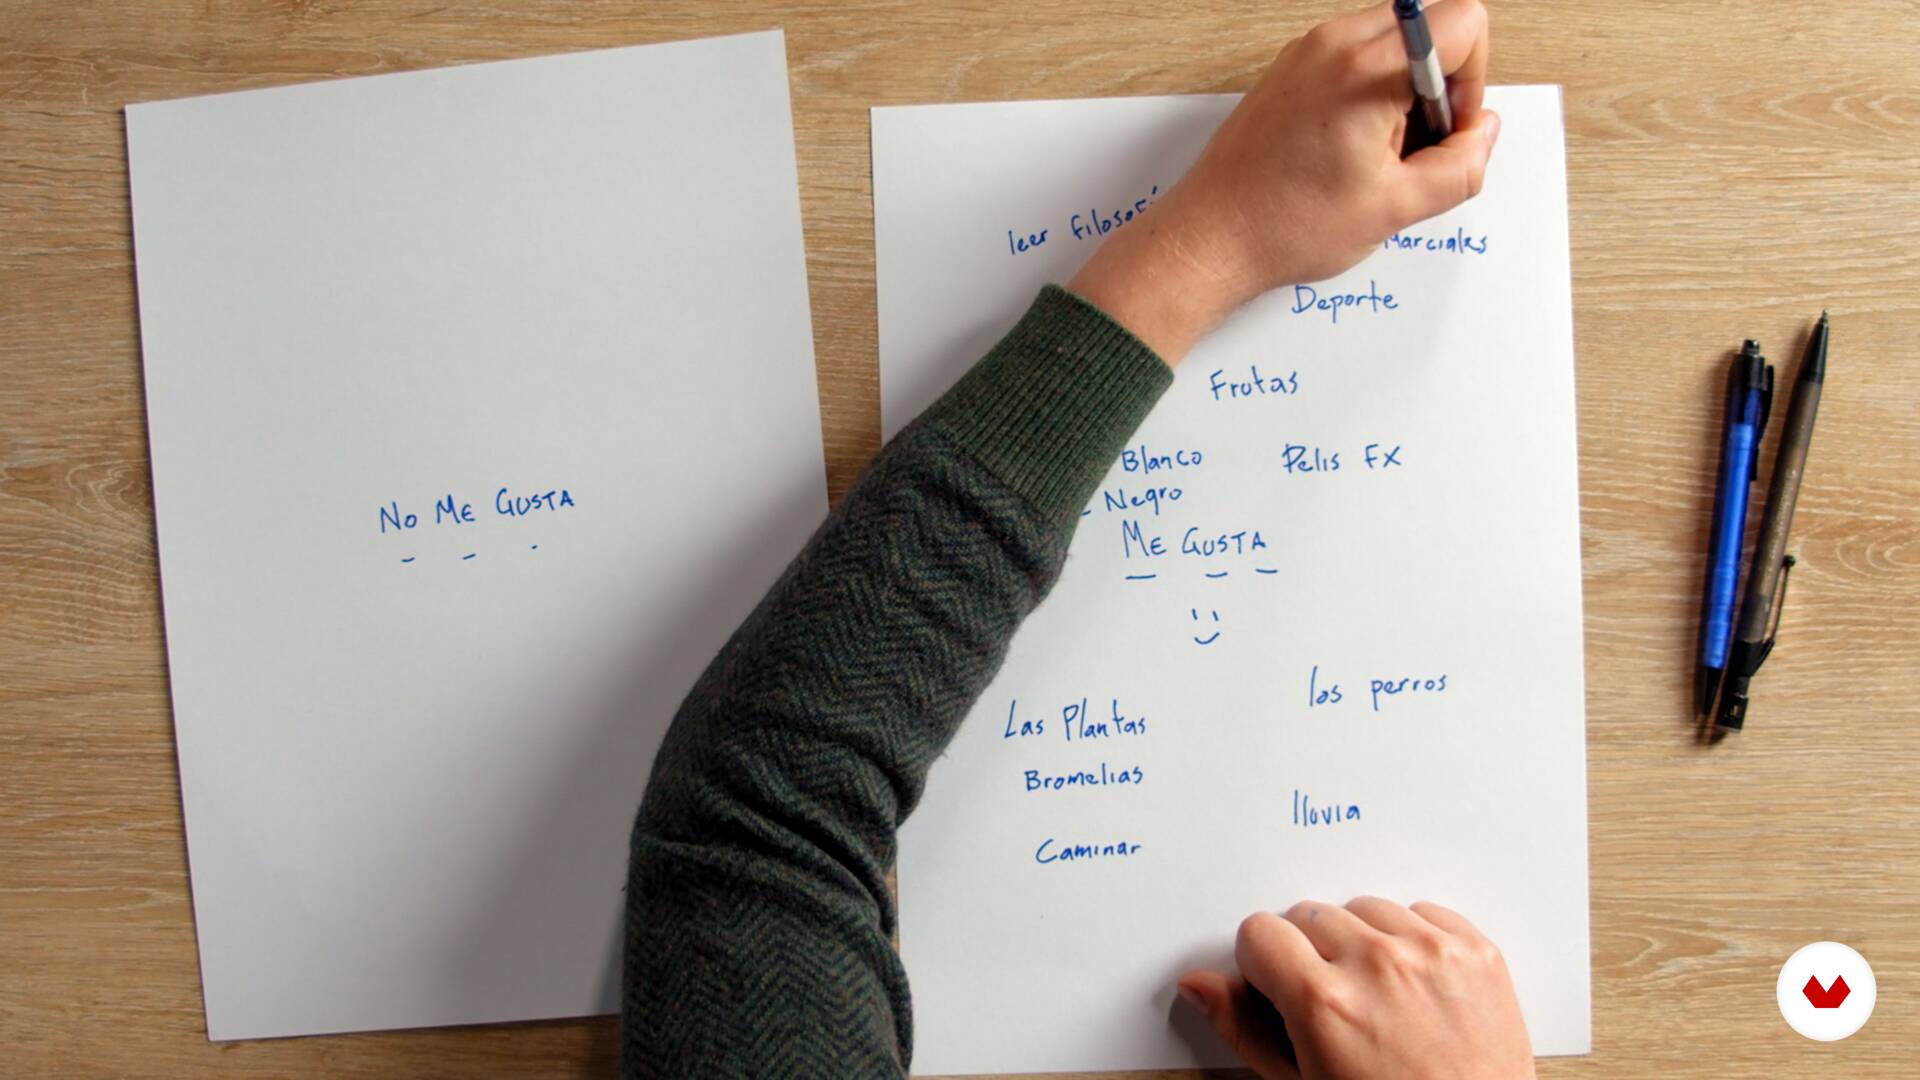 No Me Gusta
leer
Marciales
Deporte
Frutas
Blanco
Negro
Pelis FX
Me Gusta
los perros
Las Plantas
Bromelias
lluvia
Caminar